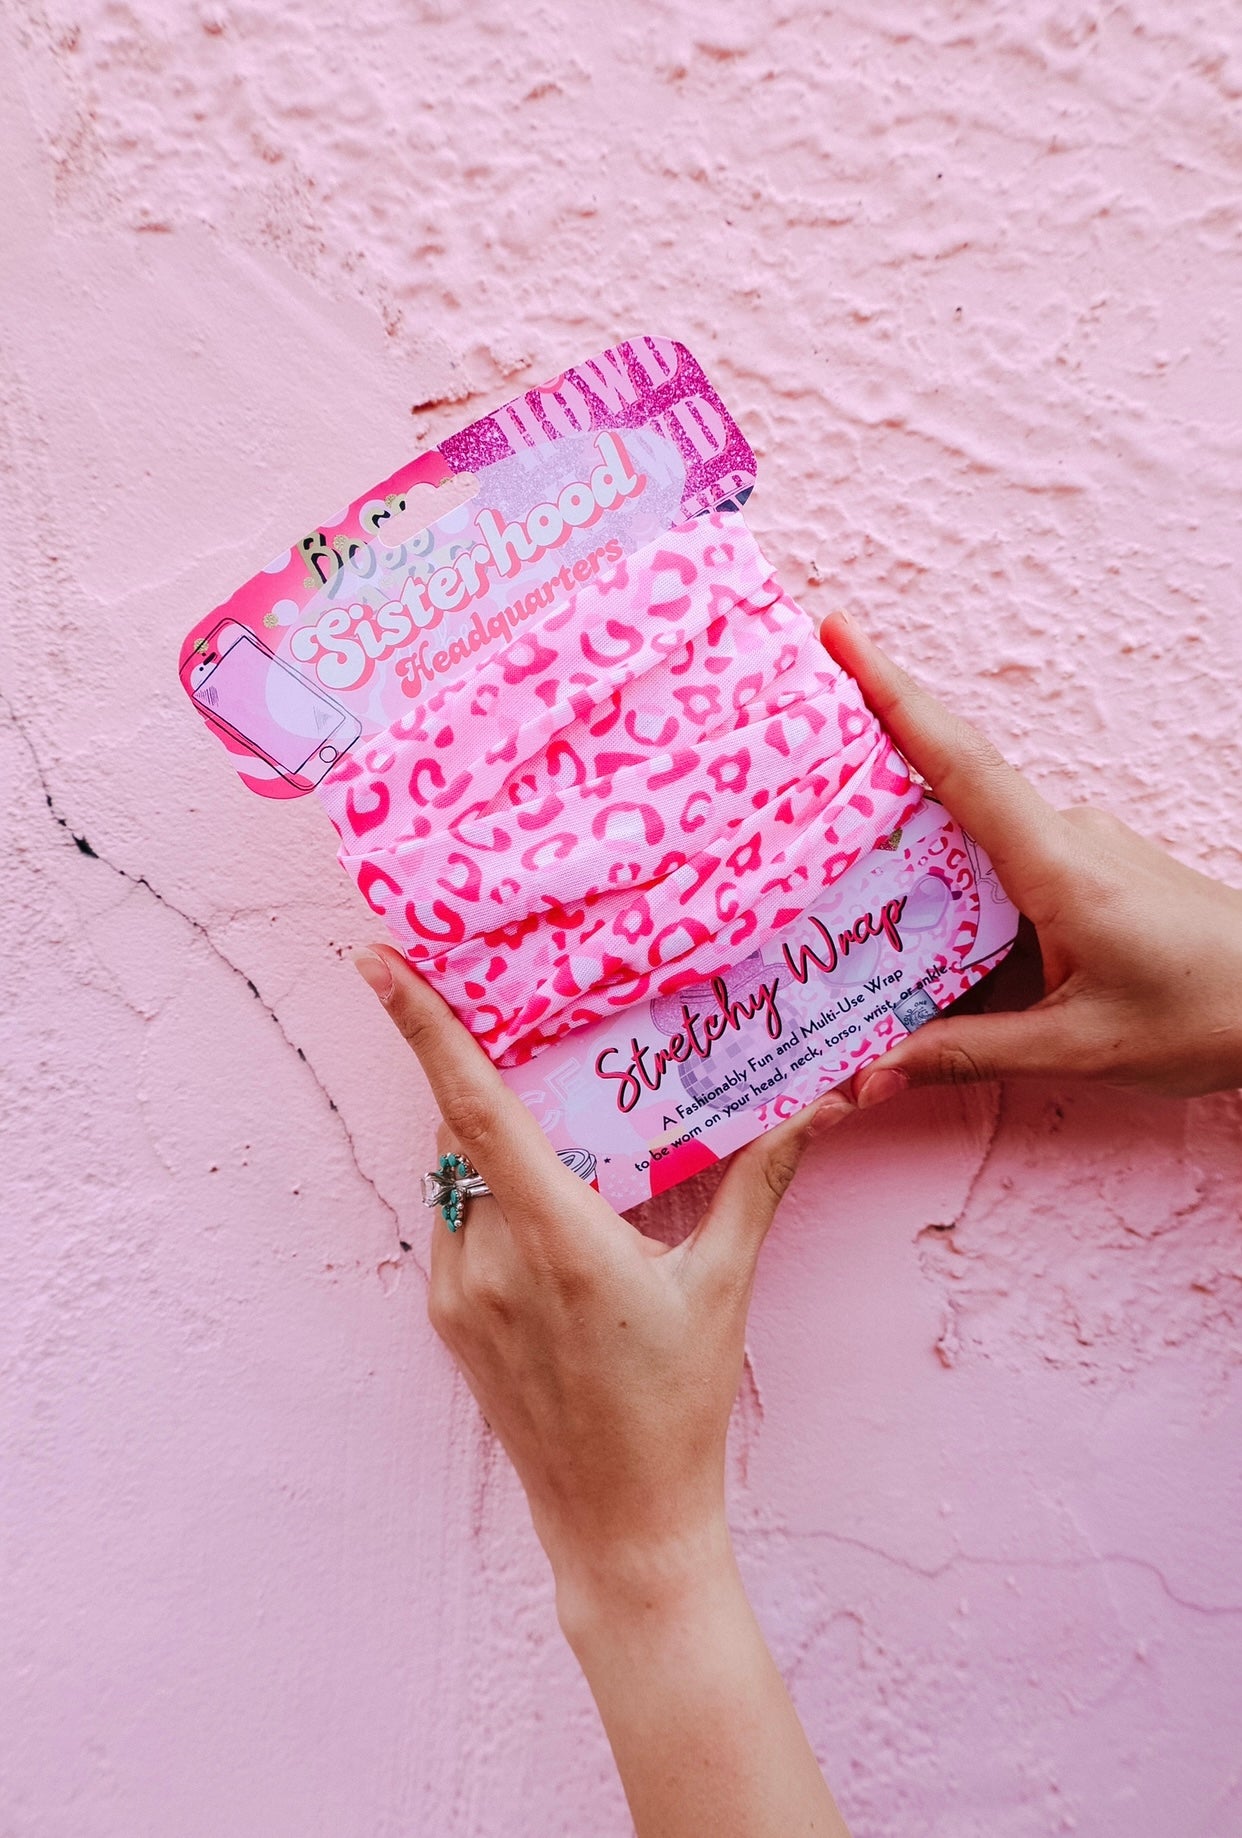 HOWD
Boss
Sisterhood
Headquarters
Stretchy Wrap
A Fashionably Fun and Multi-Use Wrap
to be worn on your head, neck, torso, wrist, or ankle.